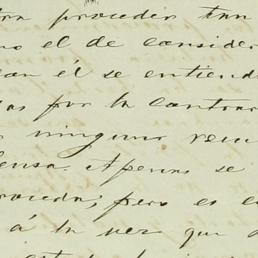 tra proceder tan
no el de consider
con él se entiend
as por la contrar
ninguno resu
ensa. Apenas se
roceda; pero es e
á la vez que